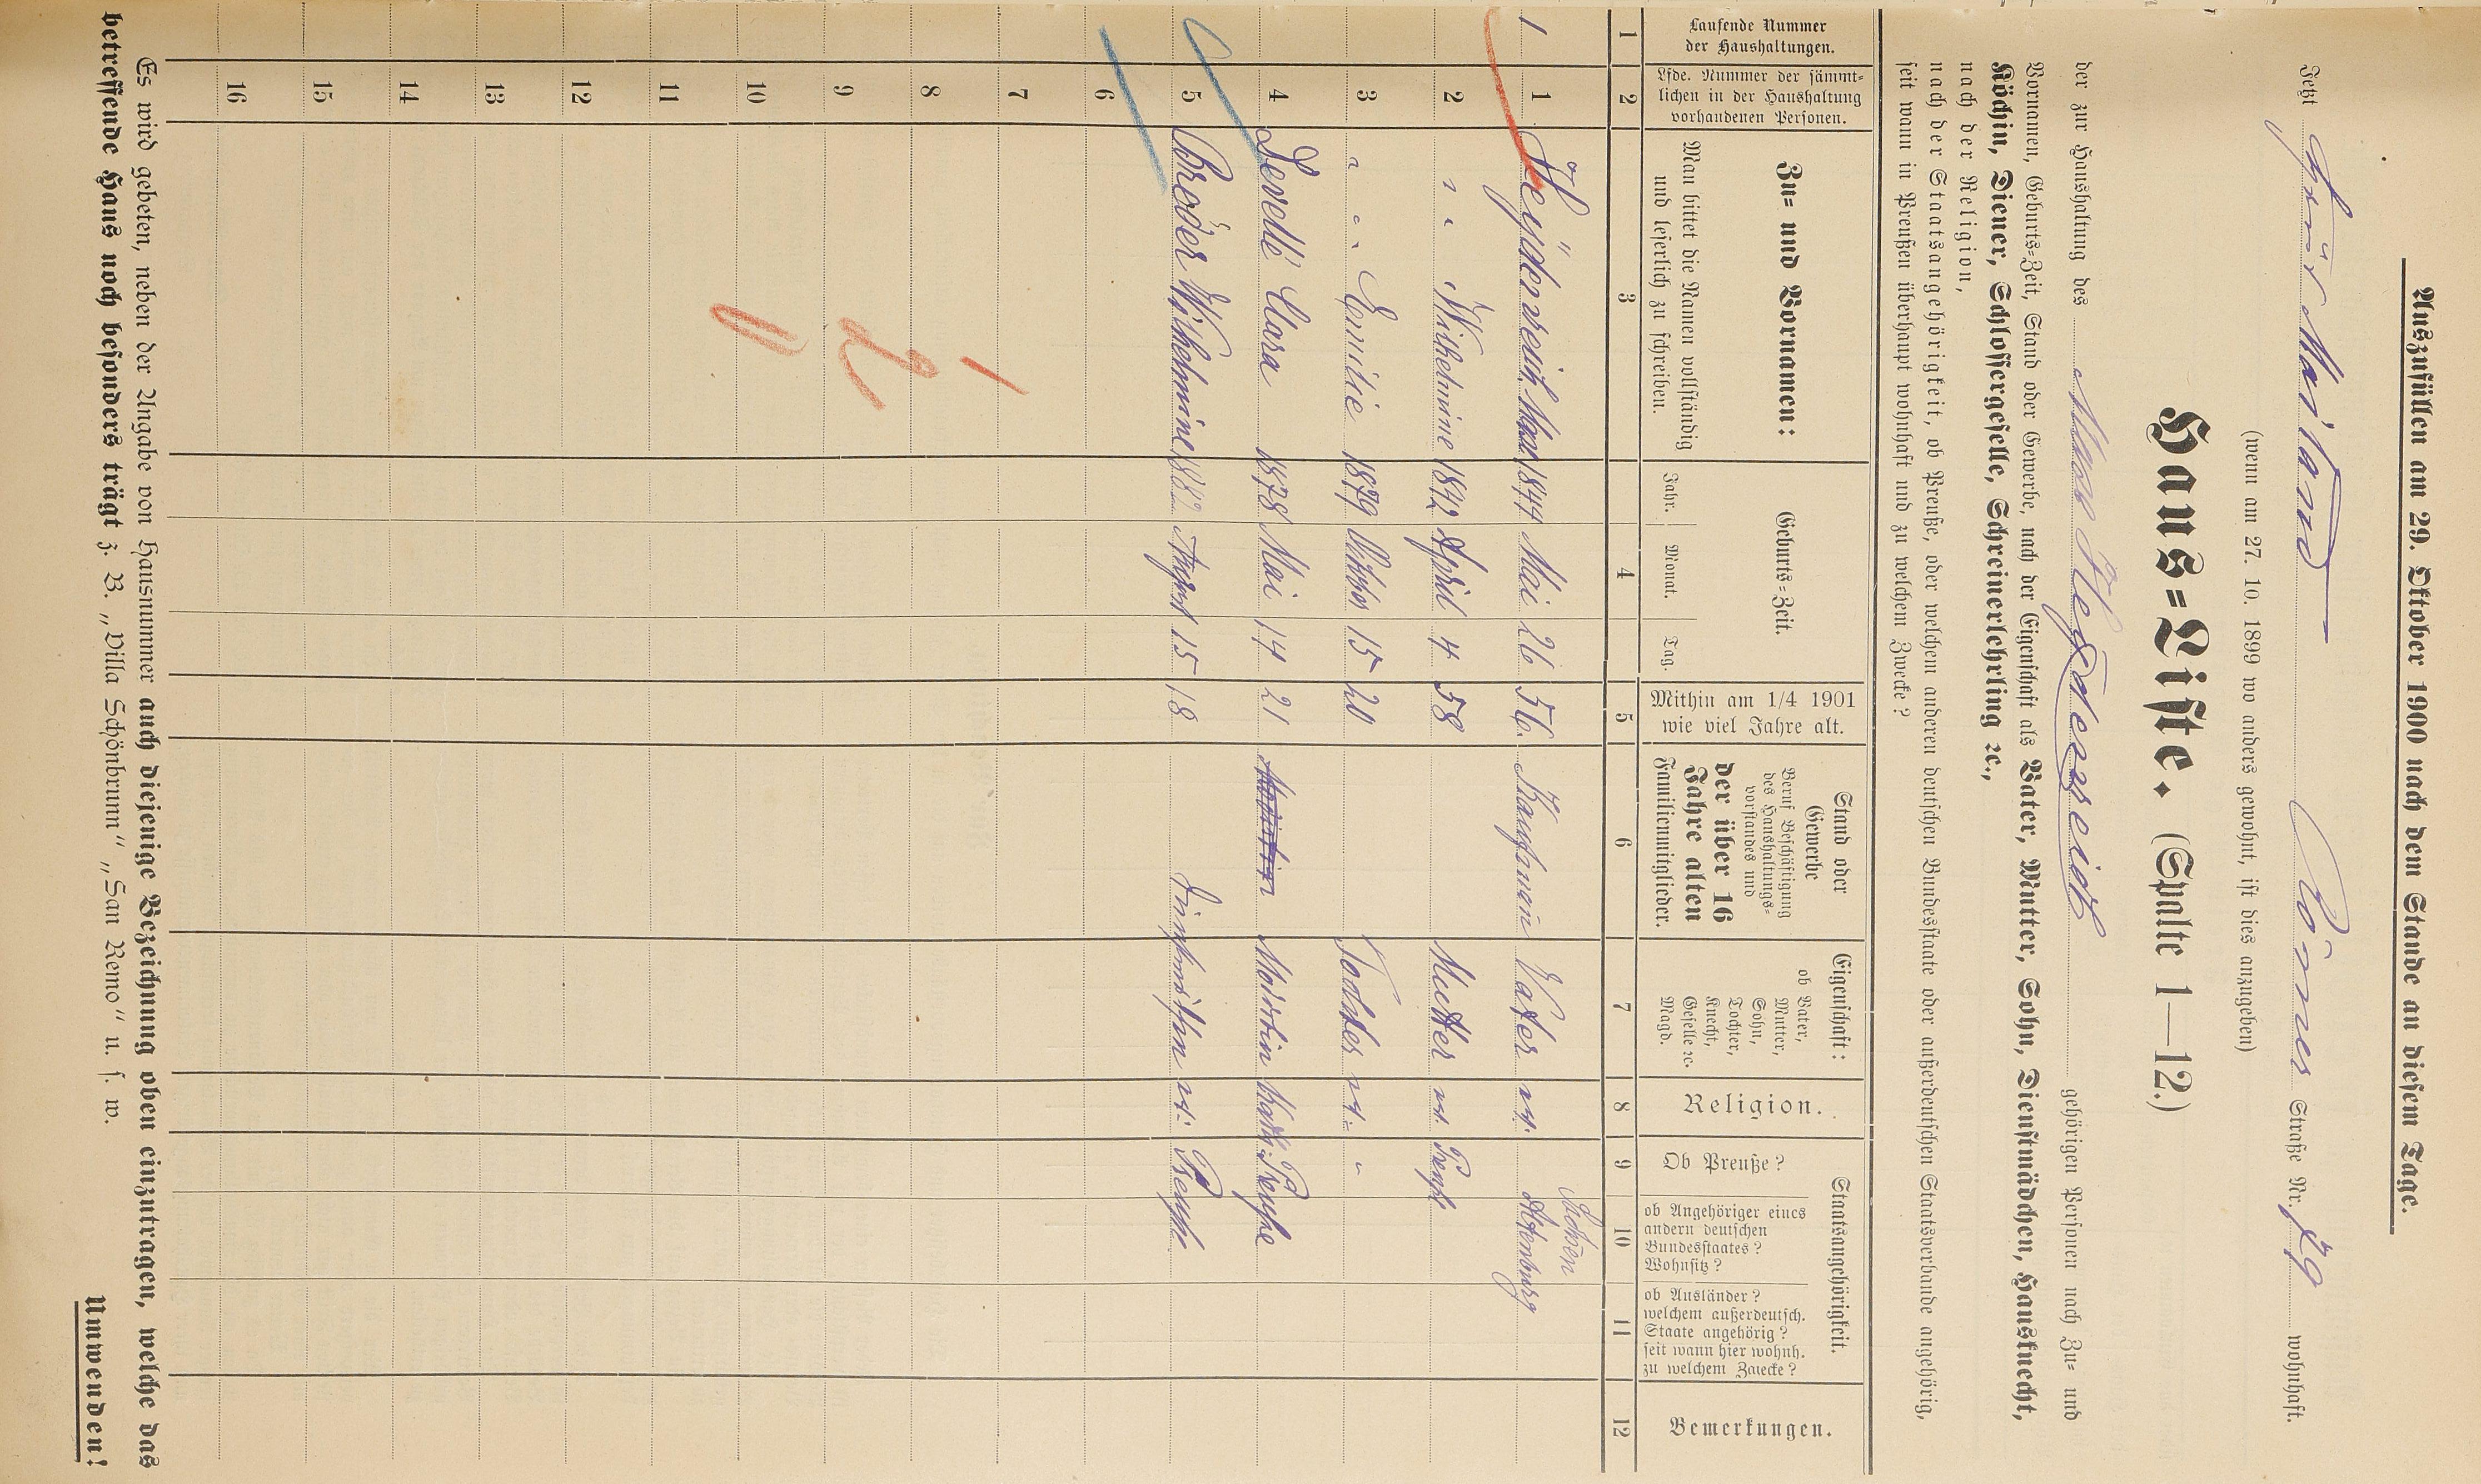 Auszufüllen am 29. Oktober 1900 nach dem Stande an diesem Tage.
Jetzt Mailand Römer Straße Nr. 29 wohnhaft.
(wenn am 27. 10. 1899 wo anders gewohnt, ist dies anzugeben)
Haus=Liste. (Spalte 1—12.)
der zur Haushaltung des Max Heydenreich gehörigen Personen nach Zu= und
Vornamen, Geburts=Zeit, Stand oder Gewerbe, nach der Eigenschaft als Vater, Mutter, Sohn, Dienstmädchen, Hausknecht,
Köchin, Diener, Schlossergeselle, Schreinerlehrling ꝛc.,
nach der Religion,
nach der Staatsangehörigkeit, ob Preuße, oder welchem anderen deutschen Bundesstaate oder außerdeutschen Staatsverbande angehörig,
seit wann in Preußen überhaupt wohnhaft und zu welchem Zwecke?
Laufende Nummer
der Haushaltungen.
Lfde. Nummer der sämmt=
lichen in der Haushaltung
vorhandenen Personen.
Zu= und Vornamen:
Man bittet die Namen vollständig
und leserlich zu schreiben.
Geburts=Zeit.
Jahr. Monat. Tag.
Mithin am 1/4 1901
wie viel Jahre alt.
Stand oder
Gewerbe
Beruf Beschäftigung
des Haushaltungs=
vorstandes und
der über 16
Jahre alten
Familienmitglieder.
Eigenschaft:
ob Vater,
Mutter,
Sohn,
Tochter,
Knecht,
Geselle ꝛc.
Magd.
Religion.
Staatsangehörigkeit.
Ob Preuße?
ob Angehöriger eines
andern deutschen
Bundesstaates?
Wohnsitz?
ob Ausländer?
welchem außerdeutsch.
Staate angehörig?
seit wann hier wohnh.
zu welchem Zwecke?
Bemerkungen.
1 2 3 4 5 6 7 8 9 10 11 12
1 1 Heydenreich Max 1844 Mai 26 56. Kaufmann Vater ev. Sachsen Altenburg
2 " " Wilhelmine 1842 April 4 58 Mutter ev. Preuße
3 " " Emilie 1879 Oktober 15 20 Tochter ev. "
4 Clara 1878 Mai 14 21 Kath. Preuße
5 Wilhelmine 1882 August 15 18 Dienstmädchen ev. Preuße
6
7
8
9
10
11
12
13
14
15
16
1
2
0
Es wird gebeten, neben der Angabe von Hausnummer auch diejenige Bezeichnung oben einzutragen, welche das
betreffende Haus noch besonders trägt z. B. „Villa Schönbrunn" „San Remo" u. s. w.
Umwenden!